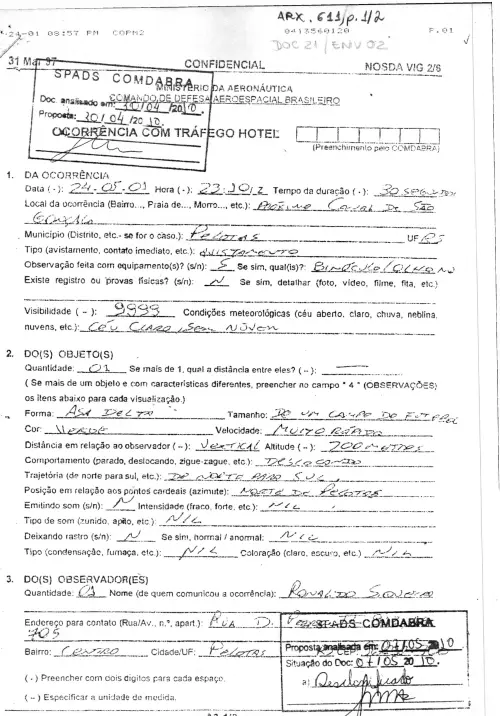 ARX. 611/p. 1/2
5-24-01 08:57 PM COPM2 0413560120 F.01
DOC 21 / ENV 02
31 Mar 97 CONFIDENCIAL NOSDA VIG 2/6
SPADS COMDABRA
MINISTÉRIO DA AERONÁUTICA
COMANDO DE DEFESA AEROESPACIAL BRASILEIRO
Doc. analisado em: 30/04/2010
Proposta: 30/04/2010.
OCORRÊNCIA COM TRÁFEGO HOTEL
(Preenchimento pelo COMDABRA)
1. DA OCORRÊNCIA
Data ( - ): 24.05.01 Hora ( - ): 23:10 Z Tempo da duração ( - ): 30 SEGUNDOS
Local da ocorrência (Bairro..., Praia de..., Morro..., etc.): PRÓXIMO CANAL DE SÃO
GONÇALO
Município (Distrito, etc.- se for o caso.): PELOTAS UF RS
Tipo (avistamento, contato imediato, etc.): AVISTAMENTO
Observação feita com equipamento(s)? (s/n): S Se sim, qual(is)?: BINÓCULO / OLHO NU
Existe registro ou provas físicas? (s/n): N Se sim, detalhar (foto, vídeo, filme, fita, etc.)
Visibilidade ( -- ): 9999 Condições meteorológicas (céu aberto, claro, chuva, neblina,
nuvens, etc.): CÉU CLARO, SEM NUVEM
2. DO(S) OBJETO(S)
Quantidade: 01 Se mais de 1, qual a distância entre eles? ( -- ):
( Se mais de um objeto e com características diferentes, preencher no campo " 4 " (OBSERVAÇÕES)
os itens abaixo para cada visualização.)
Forma: ASA DELTA Tamanho: DE UM CAMPO DE FUTEBOL
Cor: VERDE Velocidade: MUITO RÁPIDO
Distância em relação ao observador ( -- ): VERTICAL Altitude ( -- ): 700 METROS
Comportamento (parado, deslocando, zigue-zague, etc.): DESLOCANDO
Trajetória (de norte para sul, etc.): DE NORTE PARA SUL
Posição em relação aos pontos cardeais (azimute): NORTE DE PELOTAS
Emitindo som (s/n): N Intensidade (fraco, forte, etc.): N/L
Tipo de som (zunido, apito, etc.): N/L
Deixando rastro (s/n): N Se sim, normal / anormal: N/L
Tipo (condensação, fumaça, etc.): N/L Coloração (claro, escuro, etc.) N/L
3. DO(S) OBSERVADOR(ES)
Quantidade: 01 Nome (de quem comunicou a ocorrência): RONALDO
Endereço para contato (Rua/Av., n.º, apart.): RUA D.
705
SPADS COMDABRA
Bairro: CENTRO Cidade/UF: PELOTAS
Proposta analisada em: 07/05/2010
Situação do Doc: 07/05 2010.
( - ) Preencher com dois dígitos para cada espaço.
a: Desclassificado
( -- ) Especificar a unidade de medida.